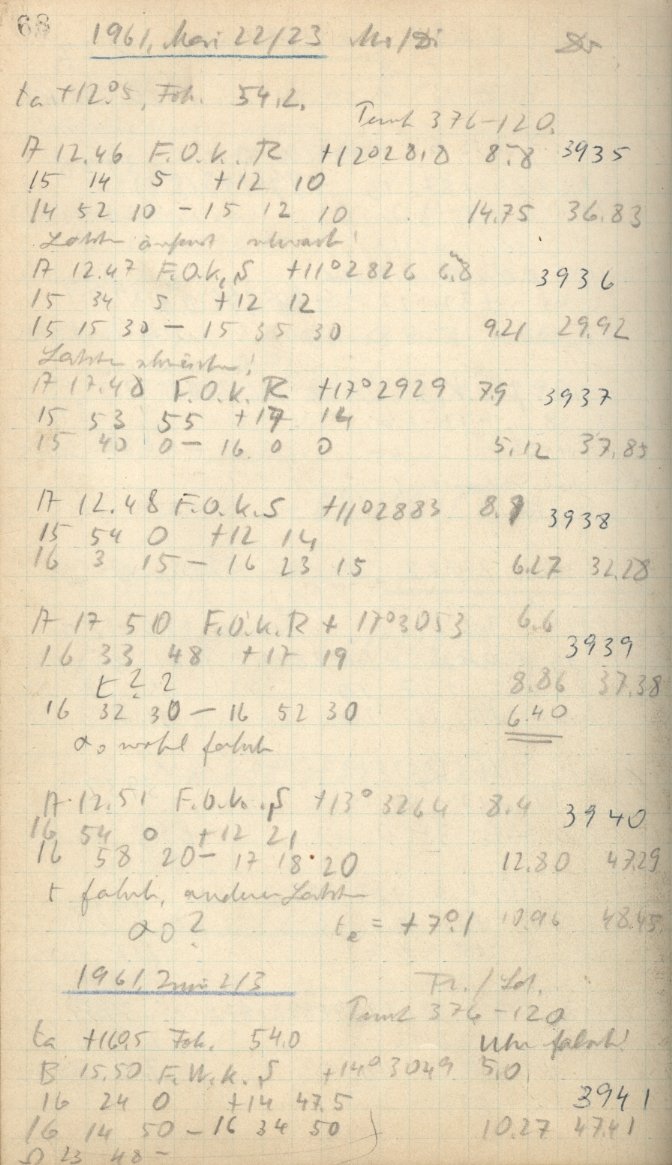 68
1961, Mai 22/23 Mo/Di
ta +12°5, Fok. 54.2.
376-120.
A 12.46 F.O.K. R +12°2818 8.8 3935
15 14 5 +12 10
14 52 10 - 15 12 10 14.75 36.83
äußerst schwach!
A 12.47 F.O.K, S +11°2826 6.8 3936
15 34 5 +12 12
15 15 30 - 15 35 30 9.21 29.92
A 17.48 F.O.K. R +17°2929 7.9 3937
15 53 55 +17 14
15 40 0 - 16 0 0 5.12 37.85
A 12.48 F.O.K.S +11°2883 8.9 3938
15 54 0 +12 14
16 3 15 - 16 23 15 6.27 32.28
A 17 50 F.O.K.R + 17°3053 6.6
3939
16 33 48 +17 19
t ? ? 8.86 37.38
16 32 30 - 16 52 30 6.40
α0 wohl falsch
A 12.51 F.O.K.,S +13°3264 8.4 3940
16 54 0 +12 21
16 58 20 - 17 18 20 12.80 47.29
t falsch, andere
α0 ? te = +7°.1 10.96 48.45
1961, Juni 2/3 Fr./
376-120
ta +16°5 Fok. 54.0 Uhr falsch!
B 15.50 F.W.K.S +14°3049 5.0
16 24 0 +14 47.5 3941
16 14 50 - 16 34 50 10.27 47.41
23 48 -